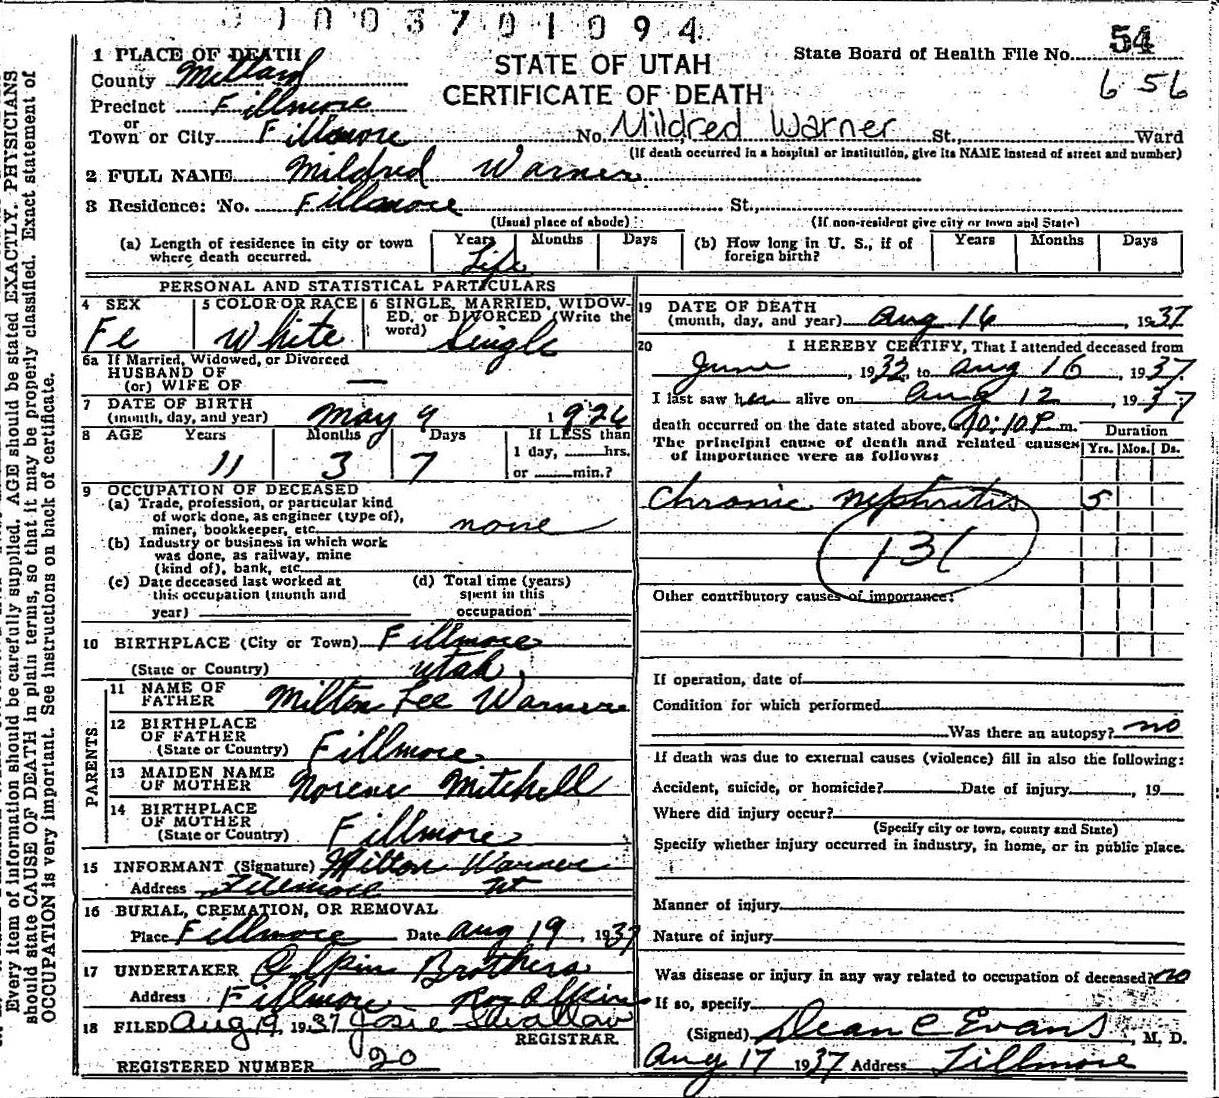 21003701094
54
State Board of Health File No.
656
STATE OF UTAH
CERTIFICATE OF DEATH
1 PLACE OF DEATH
County Millard
Precinct Fillmore
or
Town or City Fillmore No. Mildred Warner St., Ward
(If death occurred in a hospital or institution, give its NAME instead of street and number)
2 FULL NAME Mildred Warner
3 Residence: No. Fillmore St.,
(Usual place of abode) (If non-resident give city or town and State)
(a) Length of residence in city or town where death occurred. Years Months Days
Life
(b) How long in U. S., if of foreign birth? Years Months Days
PERSONAL AND STATISTICAL PARTICULARS
4 SEX Fe
5 COLOR OR RACE White
6 SINGLE, MARRIED, WIDOW-
ED, or DIVORCED (Write the
word) Single
6a If Married, Widowed, or Divorced
HUSBAND OF
(or) WIFE OF —
7 DATE OF BIRTH
(month, day, and year) May 9 1926
8 AGE Years Months Days If LESS than
1 day, hrs.
or min.?
11 3 7
9 OCCUPATION OF DECEASED
(a) Trade, profession, or particular kind
of work done, as engineer (type of),
miner, bookkeeper, etc. none
(b) Industry or business in which work
was done, as railway, mine
(kind of), bank, etc.
(c) Date deceased last worked at
this occupation (month and
year)
(d) Total time (years)
spent in this
occupation
10 BIRTHPLACE (City or Town) Fillmore
(State or Country) Utah
PARENTS
11 NAME OF
FATHER Milton Lee Warner
12 BIRTHPLACE
OF FATHER
(State or Country) Fillmore
13 MAIDEN NAME
OF MOTHER Norene Mitchell
14 BIRTHPLACE
OF MOTHER
(State or Country) Fillmore
15 INFORMANT (Signature) Milton Warner
Address Fillmore Ut
16 BURIAL, CREMATION, OR REMOVAL
Place Fillmore Date Aug 19, 1937
17 UNDERTAKER Olpin Brothers
Address Fillmore Roy Olpin
18 FILED Aug 19, 1937 Josie Swallow
REGISTRAR
REGISTERED NUMBER 20
19 DATE OF DEATH
(month, day, and year) Aug 16, 1937
20 I HEREBY CERTIFY, That I attended deceased from
June, 1932, to Aug 16, 1937
I last saw her alive on Aug 12, 1937
death occurred on the date stated above, @10:10 P.m.
The principal cause of death and related causes
of importance were as follows:
Duration
Yrs. Mos. Ds.
Chronic nephritis 5
131
Other contributory causes of importance:
If operation, date of
Condition for which performed
Was there an autopsy? no
If death was due to external causes (violence) fill in also the following:
Accident, suicide, or homicide? Date of injury , 19
Where did injury occur?
(Specify city or town, county and State)
Specify whether injury occurred in industry, in home, or in public place.
Manner of injury
Nature of injury
Was disease or injury in any way related to occupation of deceased? no
If so, specify
(Signed) Dean C Evans, M. D.
Aug 17 1937 Address Fillmore
Every item of information should be carefully supplied. AGE should be stated EXACTLY. PHYSICIANS
should state CAUSE OF DEATH in plain terms, so that it may be properly classified. Exact statement of
OCCUPATION is very important. See instructions on back of certificate.